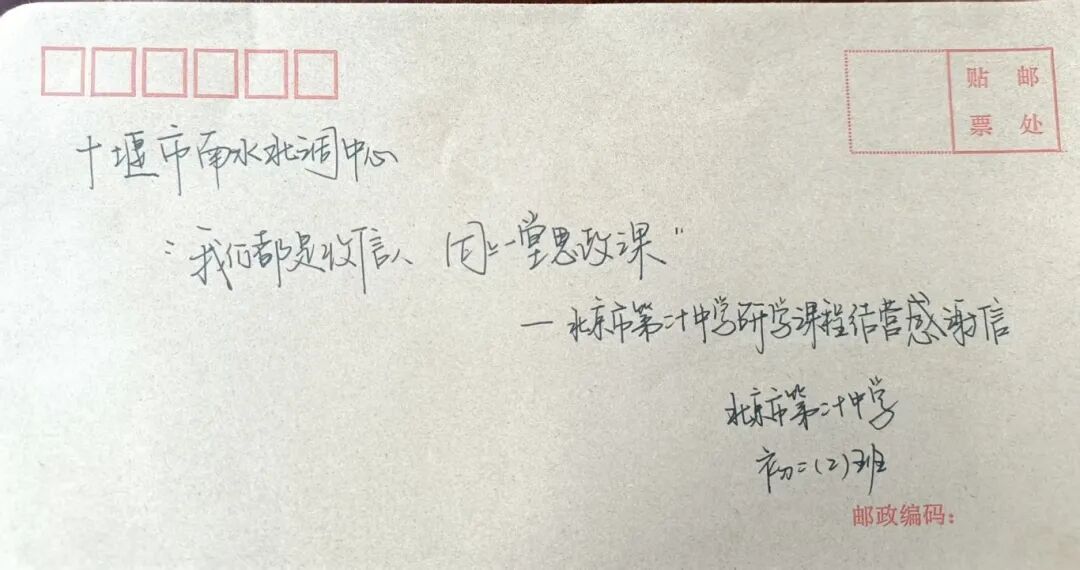 贴 邮
票 处
十堰市南水北调中心
"我们都是收信人 同上一堂思政课"
—北京市第二十中学研学课程结营感谢信
北京市第二十中学
初二(2)班
邮政编码：